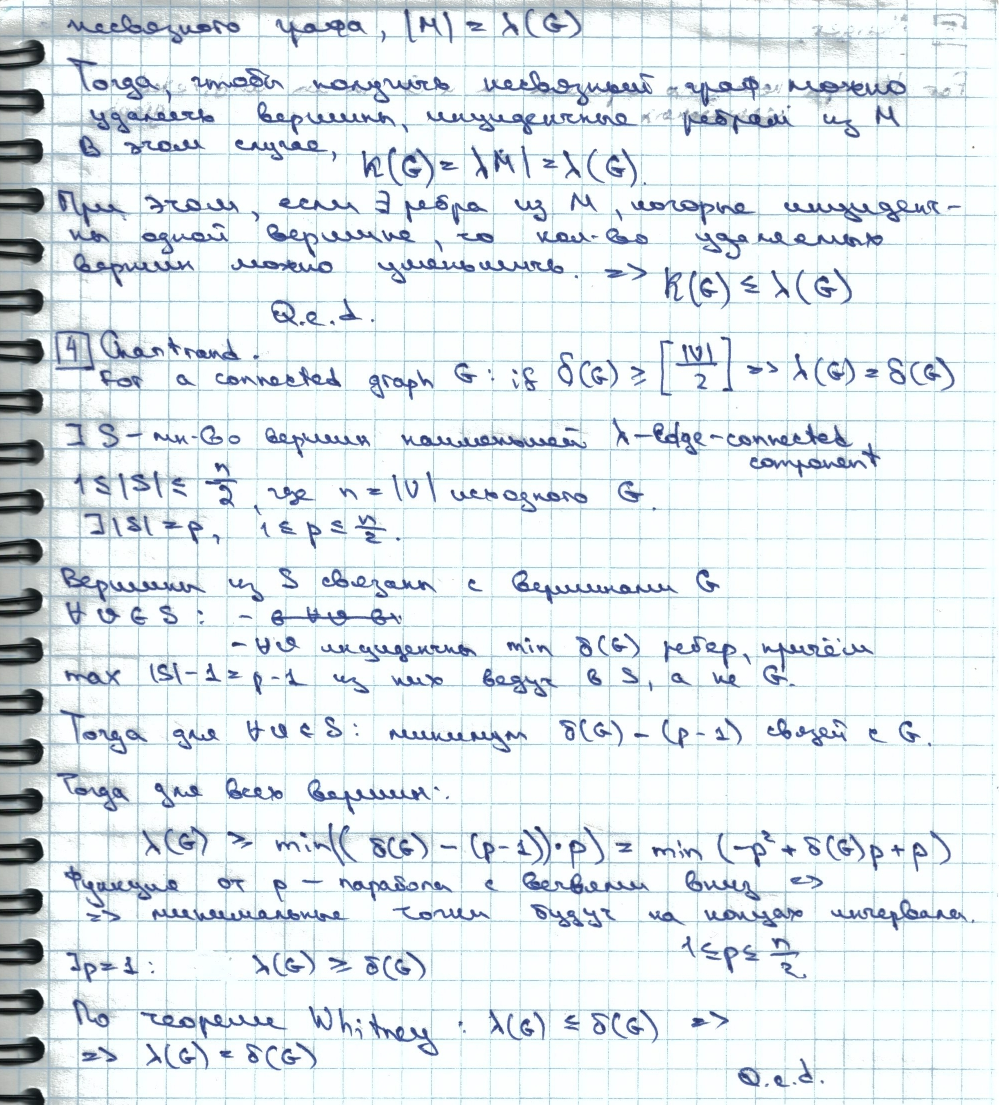 несвязного графа, |M| = λ(G)
Тогда, чтобы получить несвязный граф можно
удалить вершины, инцидентные рёбрам из M
В этом случае, K(G) = λM| = λ(G).
При этом, если ∃ ребра из M, которые инцидент-
ны одной вершине, то кол-во удаляемых
вершин можно уменьшить. => K(G) ≤ λ(G)
Q.e.d.
4 Chartrand.
For a connected graph G: if δ(G) ≥ [|V|/2] => λ(G) = δ(G)
∃ S - мн-во вершин наименьшей λ-edge-connected
component
1 ≤ |S| ≤ n/2, где n = |V| исходного G.
∃ |S| = p, 1 ≤ p ≤ n/2.
Вершины из S связаны с вершинами G
∀ v ∈ S: -
- ∀v инцидентны min δ(G) ребер, причём
max |S|-1 = p-1 из них ведут в S, а не G.
Тогда для ∀v ∈ S: минимум δ(G) - (p-1) связей с G.
Тогда для всех вершин:
λ(G) ≥ min((δ(G) - (p-1))·p) = min (-p² + δ(G)p + p)
Функция от p - парабола с ветвями вниз =>
=> минимальные точки будут на концах интервала.
1 ≤ p ≤ n/2
∃ p = 1: λ(G) ≥ δ(G)
По теореме Whitney: λ(G) ≤ δ(G) =>
=> λ(G) = δ(G)
Q.e.d.